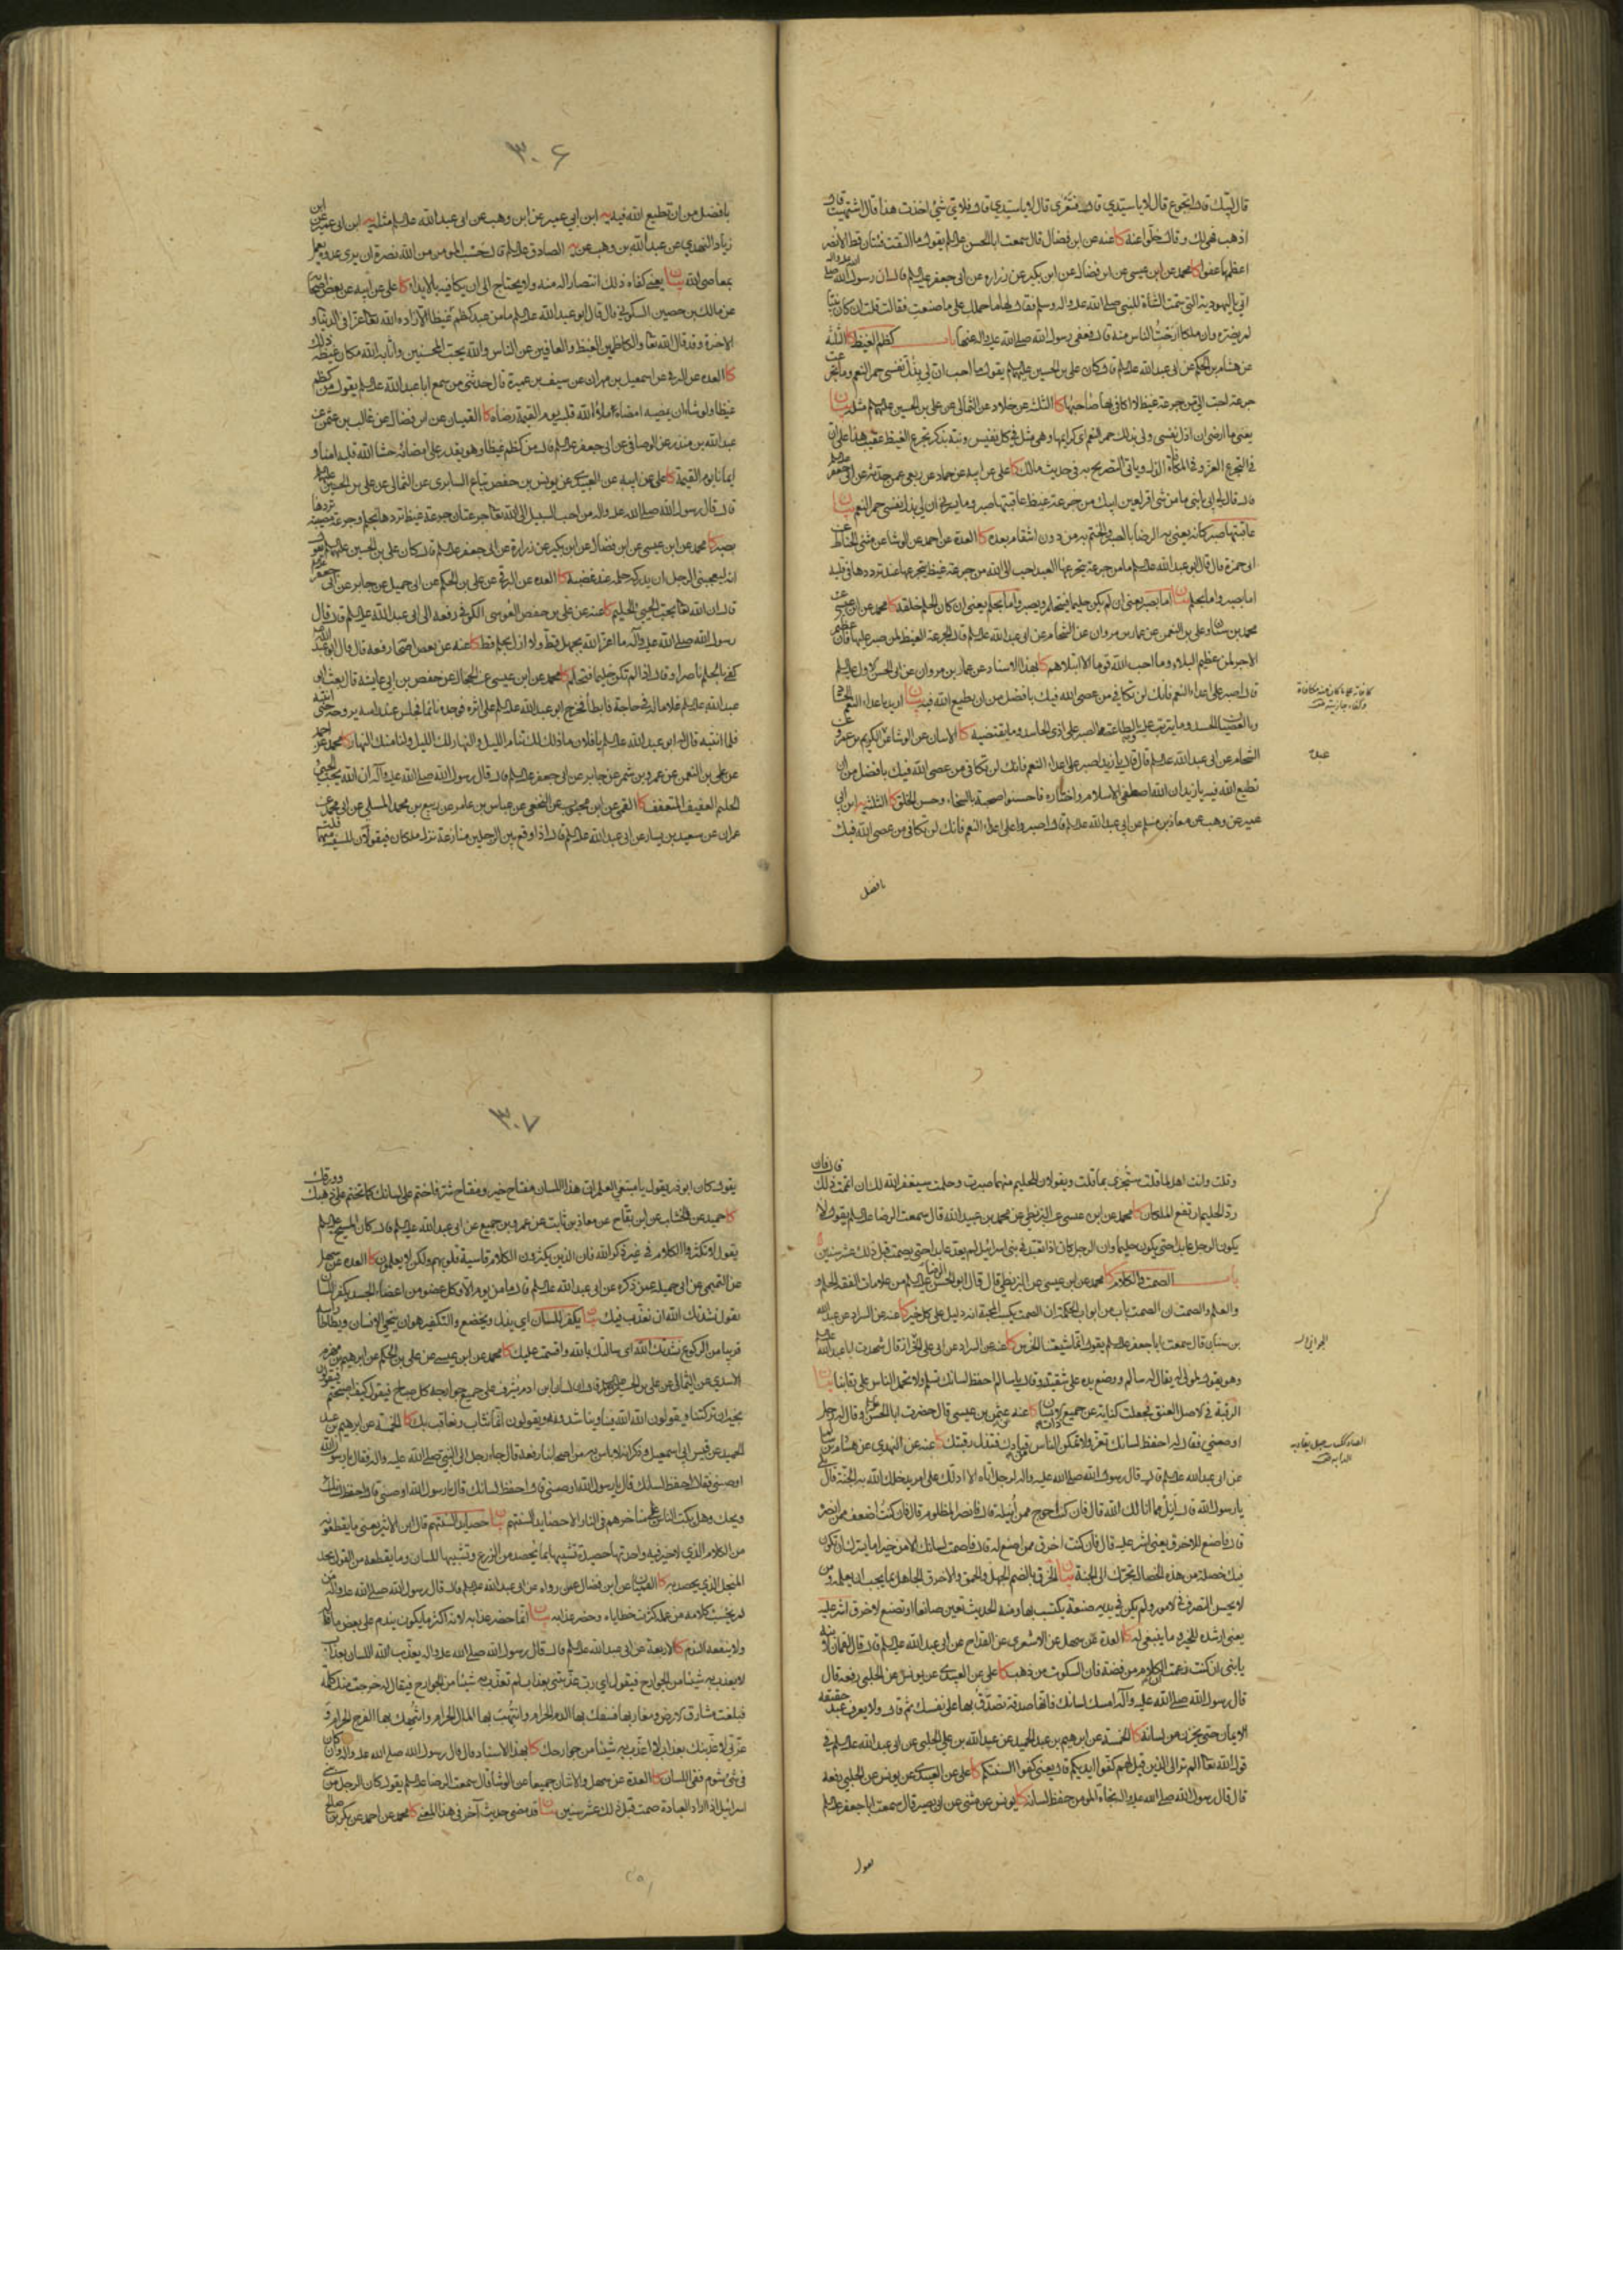 قال لبيك قال اتجوع قال لا يا سيدي قال فتعرى قال لا يا سيدي قال فلاي شئ اخذت هذا قال اشتهيت قال
اذهب فهي لك وقال خلوا عنه كا عنه عن ابن فضال قال سمعت ابا الحسن عليه السلم يقول ما التقت فئتان قط الا نصر
اعظمهما عفوا كا محمد عن ابن عيسى عن ابن فضال عن ابن بكير عن زراره عن ابي جعفر عليه السلم قال ان رسول الله صلى الله عليه واله
اتي باليهودية التي سمت الشاة للنبي صلى الله عليه واله وسلم فقال لها ما حملك على ما صنعت فقالت قلت ان كان نبيا
لم يضره وان ملكا ارحت الناس منه قال فعفى رسول الله صلى الله عليه واله عنها باب كظم الغيظ كا الثلثة
عن هشام بن الحكم عن ابي عبد الله عليه السلم قال كان علي بن الحسين عليهما السلم يقول ما احب ان لي بذل نفسي حمر النعم وما تجرعت
جرعة احب الي من جرعة غيظ لا اكافي بها صاحبها كا الثلثة عن خلاد عن الثمالي عن علي بن الحسين عليهما السلم مثله بيان
يعني ما ارضى ان اذل نفسي ولي بذلك حمر النعم اي كرايمها وهي مثل في كل نفيس ونبه بذكر تجرع الغيظ عقيب هذا على ان
في التجرع العز وفي المكافاة الذل وياتي التصريح به في حديث مالك كا علي عن ابيه عن حماد عن ربعي عمن حدثه عن ابي جعفر عليه السلم
قال قال لي ابي يا بني ما من شئ اقر لعين ابيك من جرعة غيظ عاقبتها صبر وما يسرني ان لي بذل نفسي حمر النعم بيان
ابي حمزة قال قال ابو عبد الله عليه السلم ما من جرعة يتجرعها العبد احب الى الله من جرعة غيظ يتجرعها عند ترددها في قلبه
اما بصبر واما بحلم بيان اما بصبر يعني ان لم يكن حليما فيتحلم ويصبر واما بحلم يعني ان كان الحلم خلقه كا محمد عن ابن عيسى عن
محمد بن سنان وعلي بن النعمن عن عمار بن مروان عن الشحام عن ابي عبد الله عليه السلم قال نعم الجرعة الغيظ لمن صبر عليها فان عظيم
الاجر لمن عظيم البلاء وما احب الله قوما الا ابتلاهم كا بهذا الاسناد عن عمار بن مروان عن ابي الحسن الاول عليه السلم
قال اصبر على اعداء النعم فانك لن تكافي من عصى الله فيك بافضل من ان تطيع الله فيه بيان اريد باعداء النعم الحساد
الشحام عن ابي عبد الله عليه السلم قال قال يا زيد اصبر على اعداء النعم فانك لن تكافي من عصى الله فيك بافضل من ان
تطيع الله فيه يا زيد ان الله اصطفى الاسلام واختاره فاحسنوا صحبته بالسخاء وحسن الخلق كا الثلثة يه ابن ابي
عمير عن وهب عن معاذ بن مسلم عن ابي عبد الله عليه السلم قال اصبروا على اعداء النعم فانك لن تكافي من عصى الله فيك
بافضل
٣٠٦
بافضل من ان تطيع الله فيه يه ابن ابي عمير عن ابن وهب عن ابي عبد الله عليه السلم مثله يه ابن ابي عمير عن ابن
زياد النهدي عن عبد الله بن وهب عن الصادق عليه السلم قال حسب المومن من الله نصرة ان يرى عدوه يعمل
بمعاصي الله بيان يعني كفاه ذلك انتصارا له منه ولا يحتاج الى ان يكافيه بالايذاء كا علي عن ابيه عن بعض اصحابه
عن مالك بن حصين السكوني قال قال ابو عبد الله عليه السلم ما من عبد كظم غيظا الا زاده الله تعالى عزا في الدنيا و
الاخرة وقد قال الله تعالى والكاظمين الغيظ والعافين عن الناس والله يحب المحسنين واثابه الله مكان غيظه ذلك
كا العده عن البرقي عن اسمعيل بن مهران عن سيف بن عميرة قال حدثني من سمع ابا عبد الله عليه السلم يقول من كظم
غيظا ولو شاء ان يمضيه امضاه املأ الله قلبه يوم القيمة رضاه كا القميان عن ابن فضال عن غالب بن عثمن عن
عبد الله بن منذر عن الوصافي عن ابي جعفر عليه السلم قال من كظم غيظا وهو يقدر على امضائه حشا الله قلبه امنا و
ايمانا يوم القيمة كا علي عن ابيه عن العبيدي عن يونس عن حفص بياع السابري عن الثمالي عن علي بن الحسين عليهما السلم
قال قال رسول الله صلى الله عليه واله من احب السبيل الى الله تعالى جرعتان جرعة غيظ تردها بحلم وجرعة مصيبة تردها
بصبر كا محمد عن ابن عيسى عن ابن فضال عن ابن بكير عن زرارة عن ابي جعفر عليه السلم قال كان علي بن الحسين عليهما السلم يقول
انه ليعجبني الرجل ان يدركه حلمه عند غضبه كا العده عن البرقي عن علي بن الحكم عن ابي جميل عن جابر عن ابي جعفر عليه السلم
قال ان الله تعالى يحب الحيي الحليم كا عنه عن علي بن حفص العوسي الكوفي رفعه الى ابي عبد الله عليه السلم قال قال
رسول الله صلى الله عليه وآله ما اعز الله بجهل قط ولا اذل بحلم قط كا عنه عن بعض اصحابه رفعه قال قال ابو عبد الله
كفى بالحلم ناصرا وقال اذا لم تكن حليما فتحلم كا محمد عن ابن عيسى عن الحجال عن حفص بن ابي عايشة قال بعث ابو
عبد الله عليه السلم غلاما له في حاجة فابطأ فخرج ابو عبد الله عليه السلم على اثره فوجده نائما فجلس عند راسه يروحه حتى انتبه
فلما انتبه قال له ابو عبد الله عليه السلم يا فلان ما ذلك لك تنام الليل والنهار لك الليل ولنا منك النهار كا محمد عن احمد
عن علي بن النعمن عن عمرو بن شمر عن جابر عن ابي جعفر عليه السلم قال قال رسول الله صلى الله عليه وآله ان الله يحب الحيي
الحليم العفيف المتعفف كا القمي عن ابن محبوب عن النخعي عن عباس بن عامر عن ربيع بن محمد المسلي عن ابي محمد عن
عمران عن سعيد بن يسار عن ابي عبد الله عليه السلم قال اذا وقع بين الرجلين منازعة نزل ملكان فيقولان للسفيه منهما قلت
وقلت وانت اهل لما قلت ستجزى بما قلت ويقولان للحليم منهما صبرت وحلمت سيغفر الله لك ان اتممت ذلك قال فان
رد الحليم ارتفع الملكان كا محمد عن ابن عيسى عن البزنطي عن محمد بن عبيد الله قال سمعت الرضا عليه السلم يقول لا
يكون الرجل عابدا حتى يكون حليما وان الرجل كان اذا تعبد في بني اسرائيل لم يعد عابدا حتى يصمت قبل ذلك عشر سنين
باب الصمت والكلام كا محمد عن ابن عيسى عن البزنطي قال قال ابو الحسن الرضا عليه السلم من علامات الفقه الحلم
والعلم والصمت ان الصمت باب من ابواب الحكمة ان الصمت يكسب المحبة انه دليل على كل خير كا عنه عن السراد عن عبد الله
بن سنان قال سمعت ابا جعفر عليه السلم يقول انما شيعتنا الخرس كا عنه عن السراد عن ابي علي الخزاز قال شهدت ابا عبد الله عليه السلم
وهو يقول لمولى له يقال له سالم ووضع يده على شفتيه وقال يا سالم احفظ لسانك تسلم ولا تحمل الناس على رقابنا بيان
الرقبة في الاصل العنق فجعلت كناية عن جميع ذات الانسان كا عنه عن عثمن بن عيسى قال حضرت ابا الحسن عليه السلم وقال له رجل
اوصني فقال له احفظ لسانك تعز ولا تمكن الناس من قيادك فتذل رقبتك كا عنه عن النهدي عن هشام بن سالم
عن ابي عبد الله عليه السلم قال قال رسول الله صلى الله عليه واله لرجل اتاه الا ادلك على امر يدخلك الله به الجنة قال بلى
يا رسول الله قال انل مما انالك الله قال فان كنت احوج ممن انيله قال فانصر المظلوم قال فان كنت اضعف ممن انصره
قال فاصنع للاخرق يعني اشر عليه قال فان كنت اخرق ممن اصنع له قال فاصمت لسانك الا من خير اما يسرك ان تكون
فيك خصلة من هذه الخصال تجرك الى الجنة بيان الخرق بالضم الجهل والحمق والاخرق الجاهل بما يجب ان يعلمه ومن
لا يحسن التصرف في الامور ولم يكن في يديه صنعة يكتسب بها ومنه الحديث تعين صانعا او تصنع لاخرق اشر عليه
يعني ارشده للخير وما ينبغي له كا العدة عن سهل عن الاشعري عن القداح عن ابي عبد الله عليه السلم قال قال لقمان لابنه
يا بني ان كنت زعمت ان الكلام من فضة فان السكوت من ذهب كا علي عن العبيدي عن يونس عن الحلبي رفعه قال
قال رسول الله صلى الله عليه وآله امسك لسانك فانها صدقة تصدق بها على نفسك ثم قال ولا يعرف عبد حقيقة
الايمان حتى يخزن من لسانه كا الخمسة عن ابرهيم بن عبد الحميد عن عبيد الله بن علي الحلبي عن ابي عبد الله عليه السلم في
قول الله تعالى الم تر الى الذين قيل لهم كفوا ايديكم قال يعني كفوا السنتكم كا علي عن العبيدي عن يونس عن الحلبي رفعه
قال قال رسول الله صلى الله عليه واله نجاة المومن حفظ لسانه كا يونس عن مثنى عن ابي بصير قال سمعت ابا جعفر عليه السلم
يقول
٣٠٧
يقول كان ابو ذر يقول يا مبتغي العلم ان هذا اللسان مفتاح خير ومفتاح شر فاختم على لسانك كما تختم على ذهبك وورقك
كا حميد عن الخشاب عن ابن بقاح عن معاذ بن ثابت عن عمرو بن جميع عن ابي عبد الله عليه السلم قال كان المسيح عليه السلم
يقول لا تكثروا الكلام في غير ذكر الله فان الذين يكثرون الكلام قاسية قلوبهم ولكن لا يعلمون كا العده عن سهل
عن التميمي عن ابي جميلة عمن ذكره عن ابي عبد الله عليه السلم قال ما من يوم الا وكل عضو من اعضاء الجسد يكفر اللسان
يقول نشدتك الله ان نعذب فيك بيان يكفر اللسان اي يذل ويخضع والتكفير هو ان ينحني الانسان ويطأطأ راسه
قريبا من الركوع نشدتك الله اي سالتك بالله واقسمت عليك كا محمد عن ابن عيسى عن علي بن الحكم عن ابرهيم بن مهزم
الاسدي عن الثمالي عن علي بن الحسين عليهما السلم قال ان لسان ابن ادم يشرف على جميع جوارحه كل صباح فيقول كيف اصبحتم فيقولون
بخير ان تركتنا ويقولون الله الله فينا ويناشدونه ويقولون انما نثاب ونعاقب بك كا الخمسة عن ابرهيم بن عبد
الحميد عن قيس ابي اسمعيل وذكر انه لا باس به من اصحابنا رفعه قال جاء رجل الى النبي صلى الله عليه واله فقال يا رسول الله
اوصني فقال احفظ لسانك قال يا رسول الله اوصني قال احفظ لسانك قال يا رسول الله اوصني قال احفظ لسانك
ويحك وهل يكب الناس على مناخرهم في النار الا حصايد السنتهم بيان حصايد السنتهم قال ابن الاثير يعني ما يقطعونه
من الكلام الذي لا خير فيه واحدتها حصيدة تشبيها بما يحصد من الزرع وتشبيها للسان وما يقطعه من القول بحد
المنجل الذي يحصد به كا القميان عن ابن فضال عمن رواه عن ابي عبد الله عليه السلم قال قال رسول الله صلى الله عليه واله من
لم يحسب كلامه من عمله كثرت خطاياه وحضر عذابه بيان انما حضر عذابه لانه اكثر ما يكون يندم على بعض ما قاله
ولا ينفعه الندم كا الاربعة عن ابي عبد الله عليه السلم قال قال رسول الله صلى الله عليه واله يعذب الله اللسان بعذاب
لا يعذب به شيئا من الجوارح فيقول اي رب عذبتني بعذاب لم تعذب به شيئا من الجوارح فيقال له خرجت منك كلمة
فبلغت مشارق الارض ومغاربها فسفك بها الدم الحرام وانتهب بها المال الحرام وانتهك بها الفرج الحرام و
عزتي لاعذبنك بعذاب لا اعذب به شيئا من جوارحك كا بهذا الاسناد قال قال رسول الله صلى الله عليه واله ان كان
في شئ شوم ففي اللسان كا العدة عن سهل والاثنان جميعا عن الوشا قال سمعت الرضا عليه السلم يقول كان الرجل من بني
اسرائيل اذا اراد العبادة صمت قبل ذلك عشر سنين بيان قد مضى حديث آخر في هذا المعنى كا محمد عن احمد عن بكر بن صالح